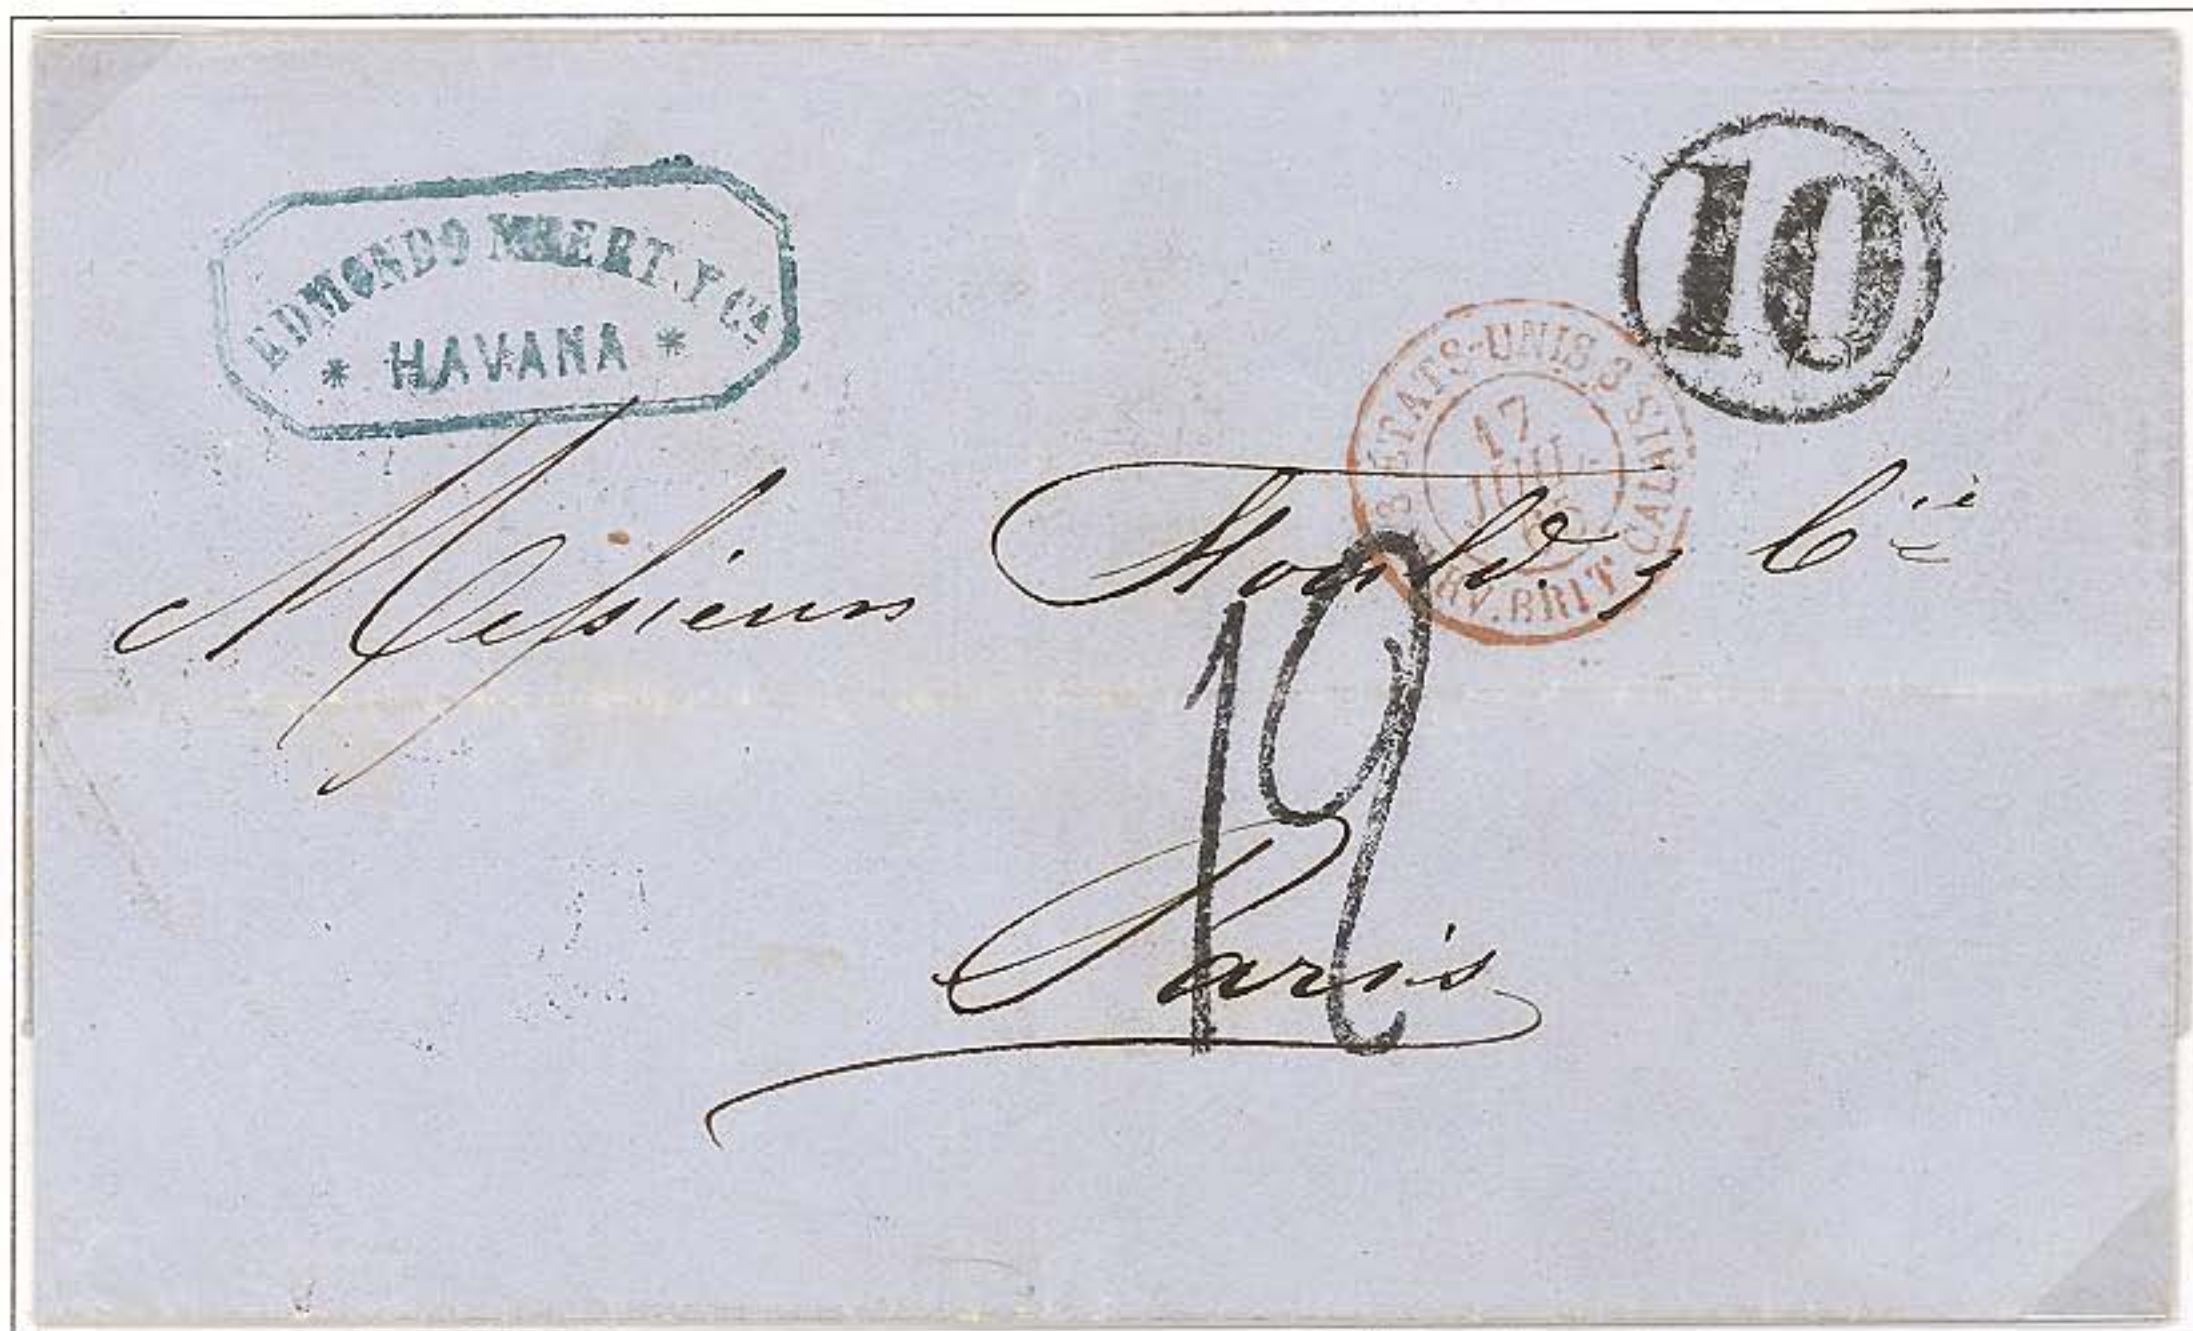 EDMONDO Y Cª
* HAVANA *
10
3 ETATS-UNIS 3
17
JUIL
SERV. BRIT. CALAIS
Messieurs & Cie
12
Paris